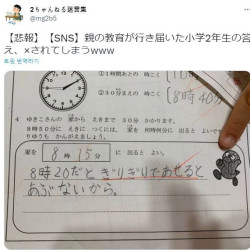 ２ちゃんねる迷言集
@mg2b5
【悲報】【SNS】親の教育が行き届いた小学2年生の答
え、×されてしまうwww
트윗 번역하기
① 1時間あとの 時こく
② 30分まえの 時こく
8時40分
4 ゆきこさんの 家から えきまで 30分 かかります。
8時50分に えきに つくには、 家を 何時何分に 出ると よいで
しょうか。
家を 8時15分に 出ると よい。
8時20だと ぎりぎりであせると
あぶないから。